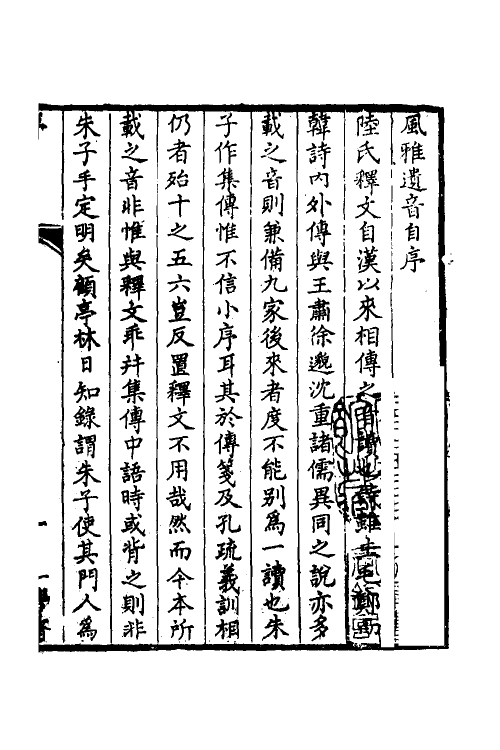 風雅遺音自序
陸氏釋文自漢以來相傳之音讀也詩雖主毛鄭而
韓詩內外傳與王肅徐邈沈重諸儒異同之說亦多
載之音則兼備九家後來者度不能別為一讀也朱
子作集傳惟不信小序耳其於傳箋及孔疏義訓相
仍者殆十之五六豈反置釋文不用哉然而今本所
載之音非惟與釋文乖幷集傳中語時或背之則非
朱子手定明矣顧亭林日知錄謂朱子使其門人為
序
一